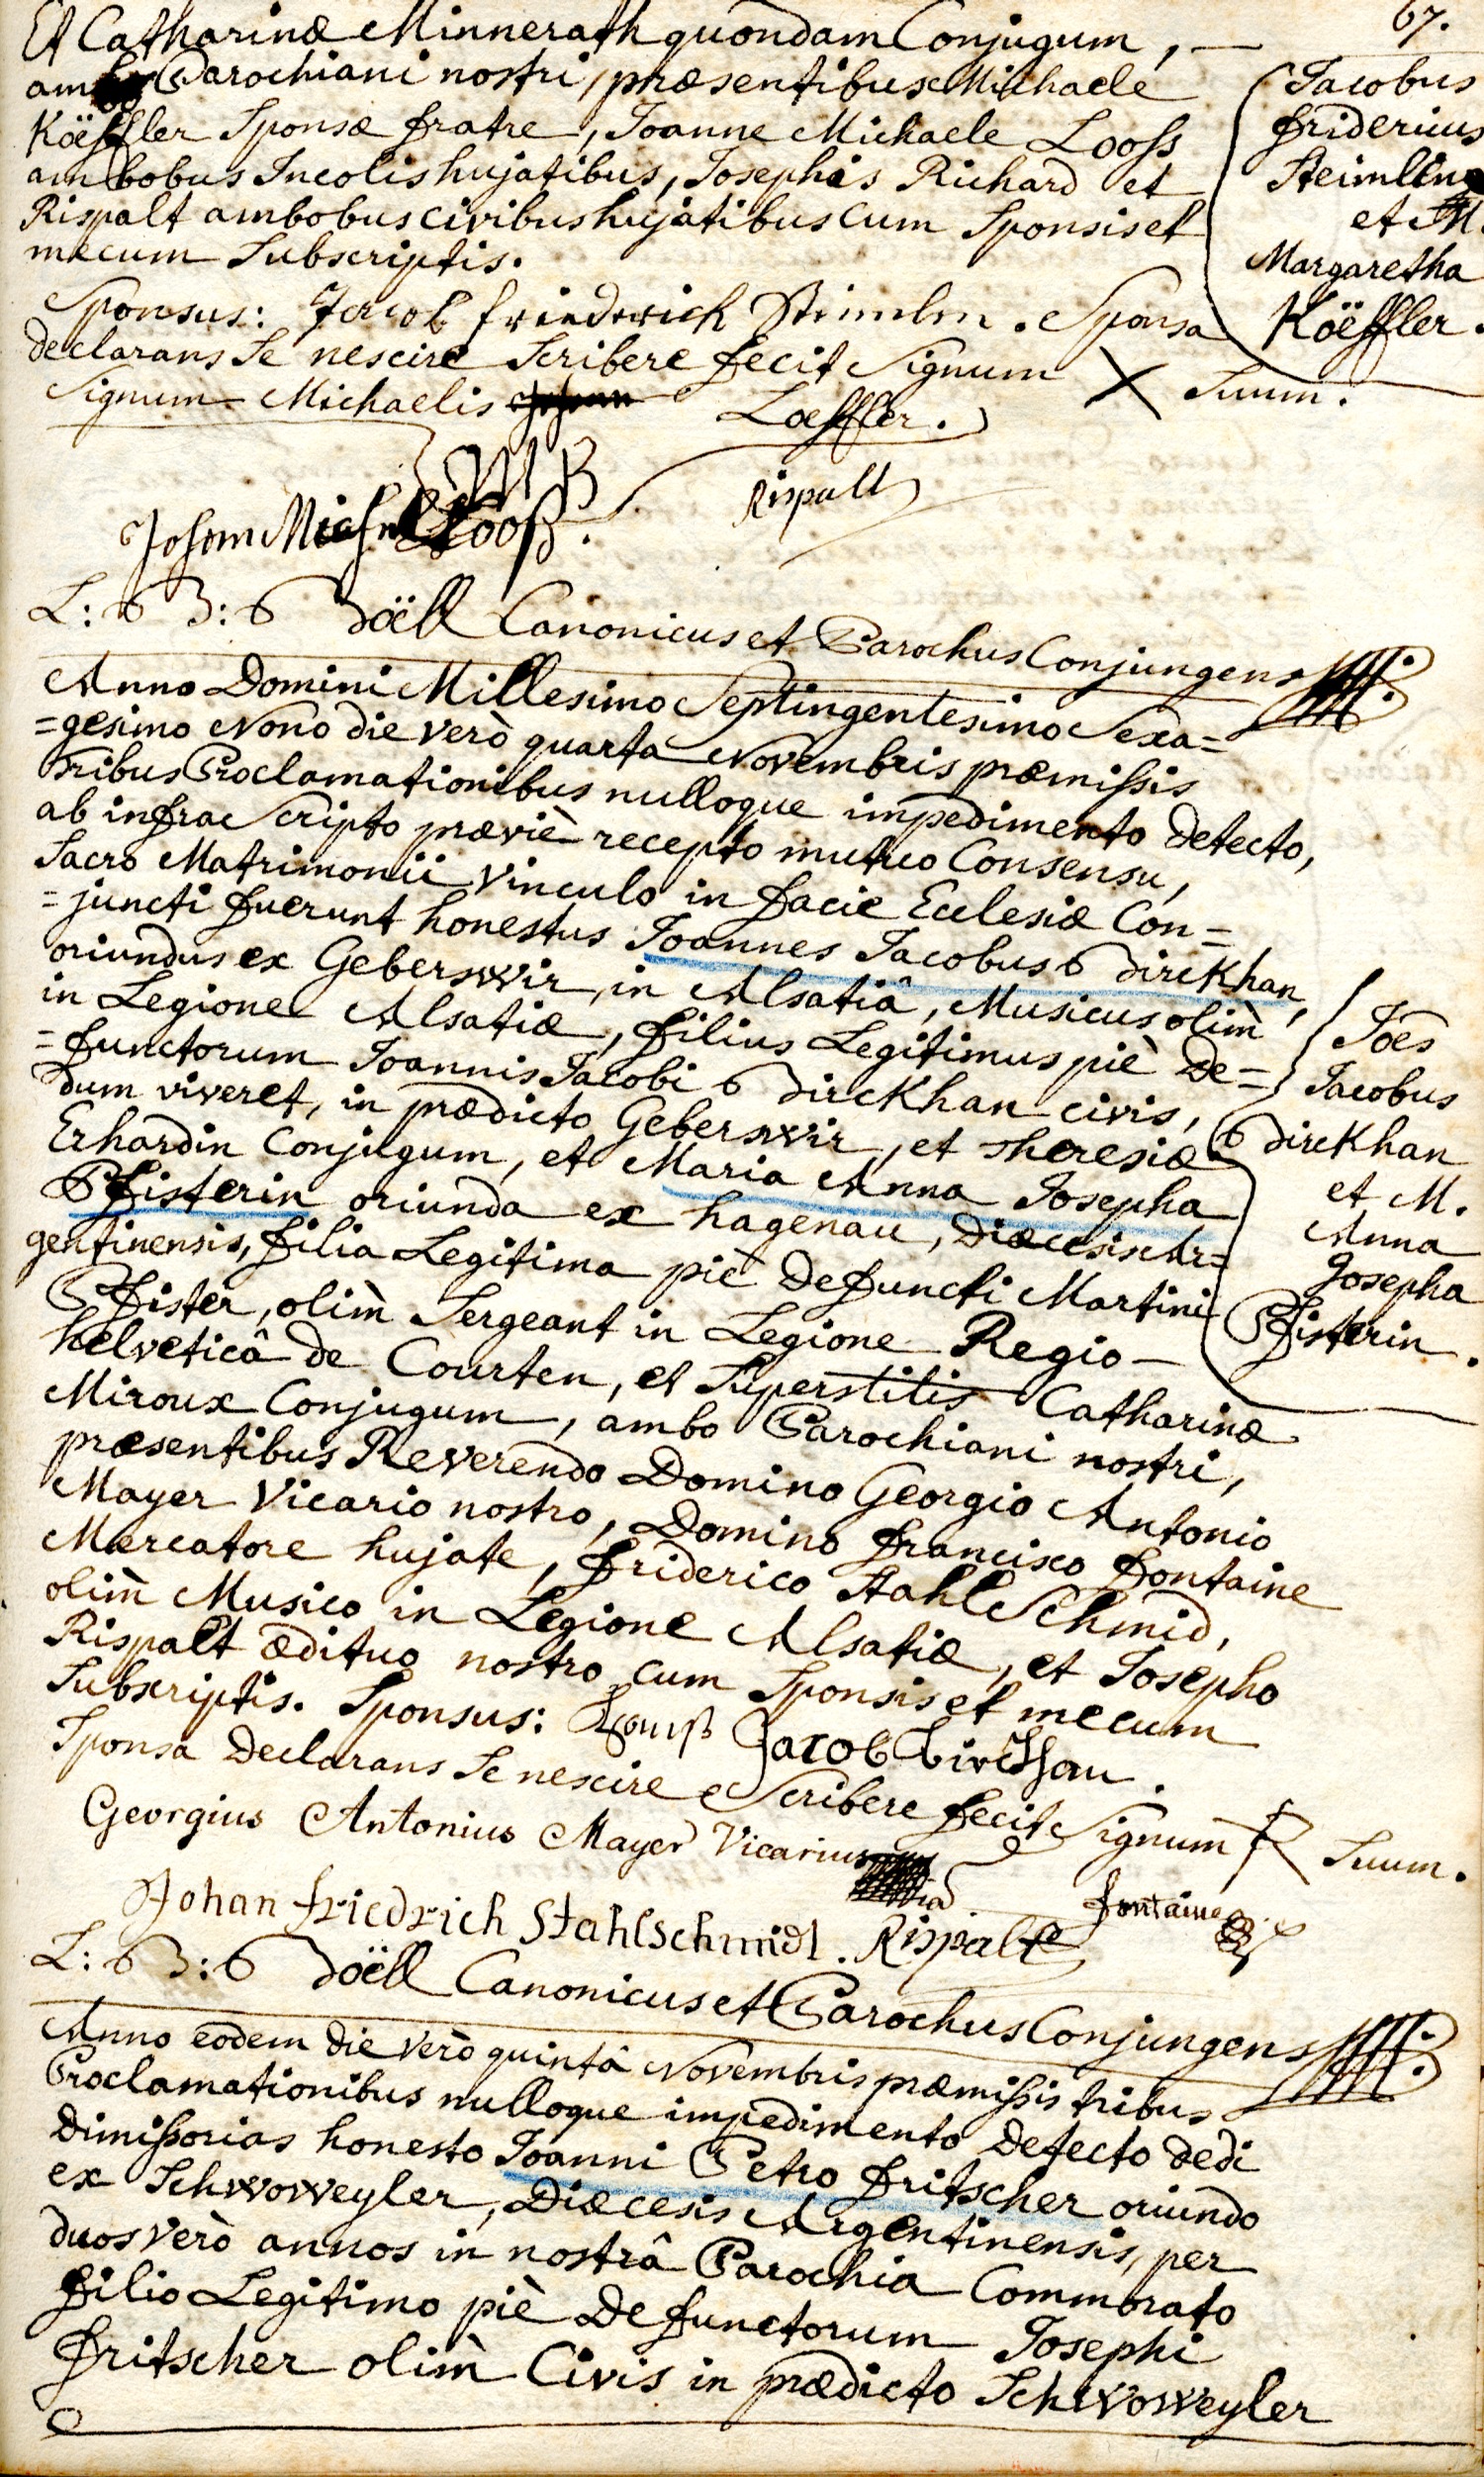 67.
Et Catharinæ Minnerath quondam Conjugum,
ambo Parochiani nostri, præsentibus Michaele
Köeffler Sponsæ fratre, Joanne Michaele Looss
ambobus Incolis hujatibus, Josephis Richard et
Rispalt ambobus civibus hujatibus cum Sponsis et
mecum Subscriptis.
Sponsus: Jacob friederich Steimlin. Sponsa
declarans Se nescire Scribere fecit Signum X Suum.
Signum Michaelis Loeffler.
Jacobus
fridericus
Steimlin
et M.
Margaretha
Köeffler.
Rispalt
Johann Michel Looß.
L: B J: B Doëll Canonicus et Parochus Conjungens
Anno Domini Millesimo Septingentesimo Sexa=
=gesimo Nono die verò quarta Novembris præmissis
tribus Proclamationibus nulloque impedimento detecto,
ab infra Scripto præviè recepto mutuo Consensu,
Sacro Matrimonii vinculo in facie Ecclesiæ Con=
=juncti fuerunt honestus Joannes Jacobus Birckhan,
oriundus ex Geberswir, in Alsatiâ, Musicus olim̀
in Legione Alsatiæ, filius Legitimus piè De=
=functorum Joannis Jacobi Birckhan civis,
dum viveret, in prædicto Geberswir, et Theresiæ
Erhardin Conjugum, et Maria Anna Josepha
Pfisterin oriunda ex hagenau, Diœcesis Ar=
gentinensis, filia Legitima piè Defuncti Martini
Pfister, olim̀ Sergeant in Legione Regio
helveticâ de Courten, et Superstitis Catharinæ
Miroux Conjugum, ambo Parochiani nostri,
præsentibus Reverendo Domino Georgio Antonio
Mayer Vicario nostro, Domino francisco fontaine
Mercatore hujate, friderico Stahl Schmid,
olim̀ Musico in Legione Alsatiæ, et Josepho
Rispalt ædituo nostro cum Sponsis et mecum
Subscriptis. Sponsus: Jacob Birckhan.
Sponsa Declarans Se nescire Scribere fecit Signum Suum.
Joes
Jacobus
Birckhan
et M.
Anna
Josepha
Pfisterin.
Georgius Antonius Mayer Vicarius
fontaine
Johan friedrich Stahlschmidt. Rispalt
L: B J: B Doëll Canonicus et Parochus Conjungens
Anno eodem die verò quintâ Novembris præmissis tribus
Proclamationibus nulloque impedimento Detecto dedi
Dimissorias honesto Joanni Petro fritscher oriundo
ex Schwoweyler, Diœcesis Argentinensis, per
duos verò annos in nostrâ Parochia Commorato
filio Legitimo piè Defunctorum Josephi
fritscher olim̀ Civis in prædicto Schwoweyler